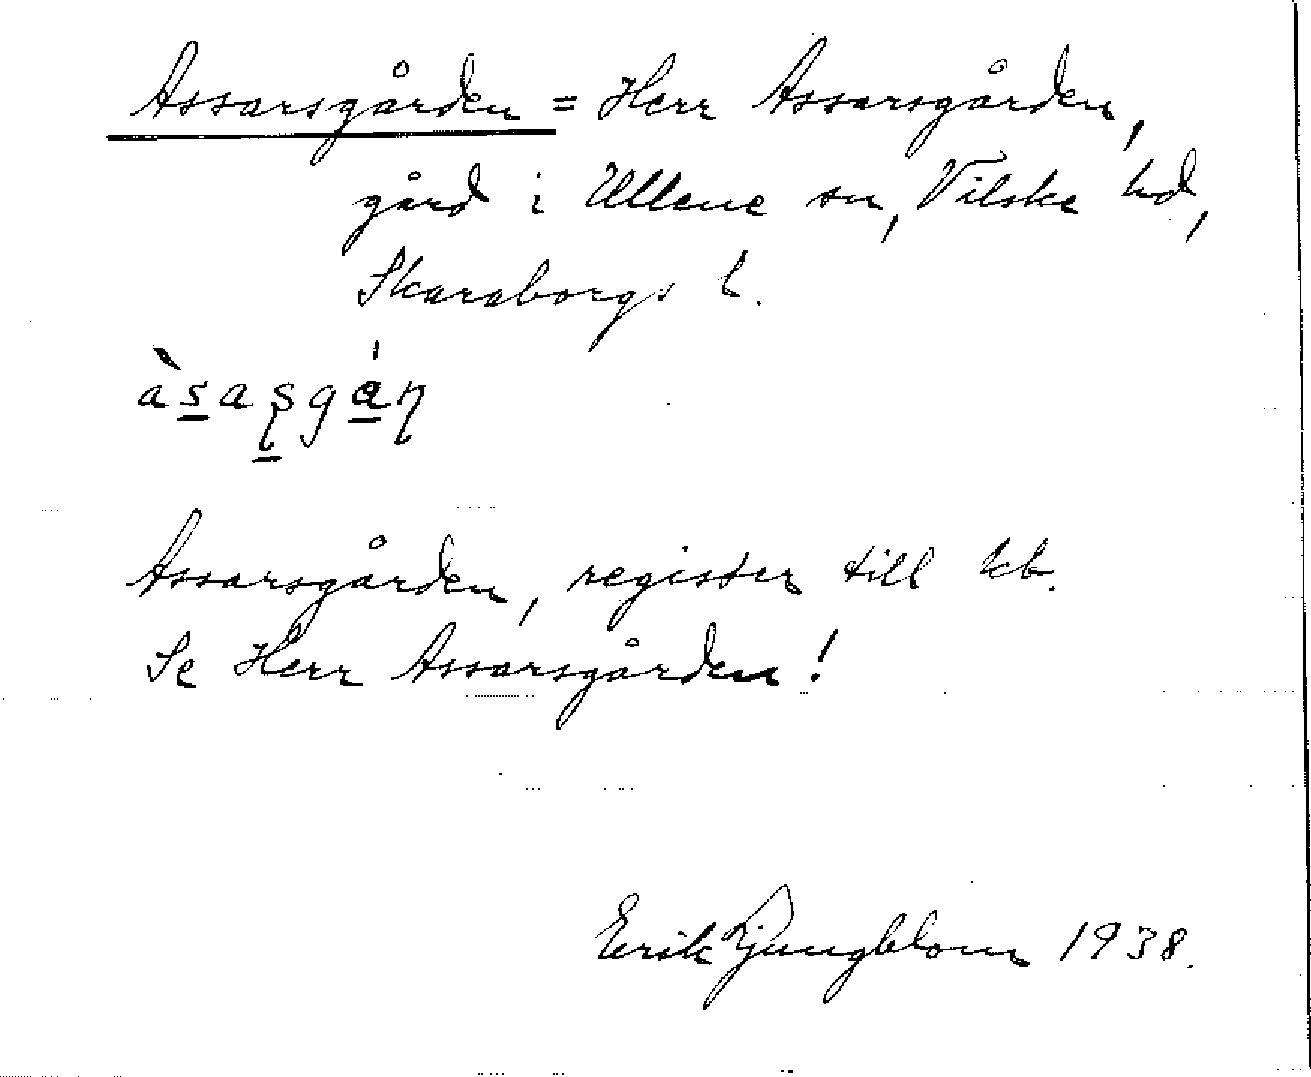 Assarsgården = Herr Assarsgården,
gård i Ullene sn, Vilske hd,
Skaraborgs l.
àsaşgán
Assarsgården, register till kb.
Se Herr Assarsgården!
Erik Ljungblom 1938.